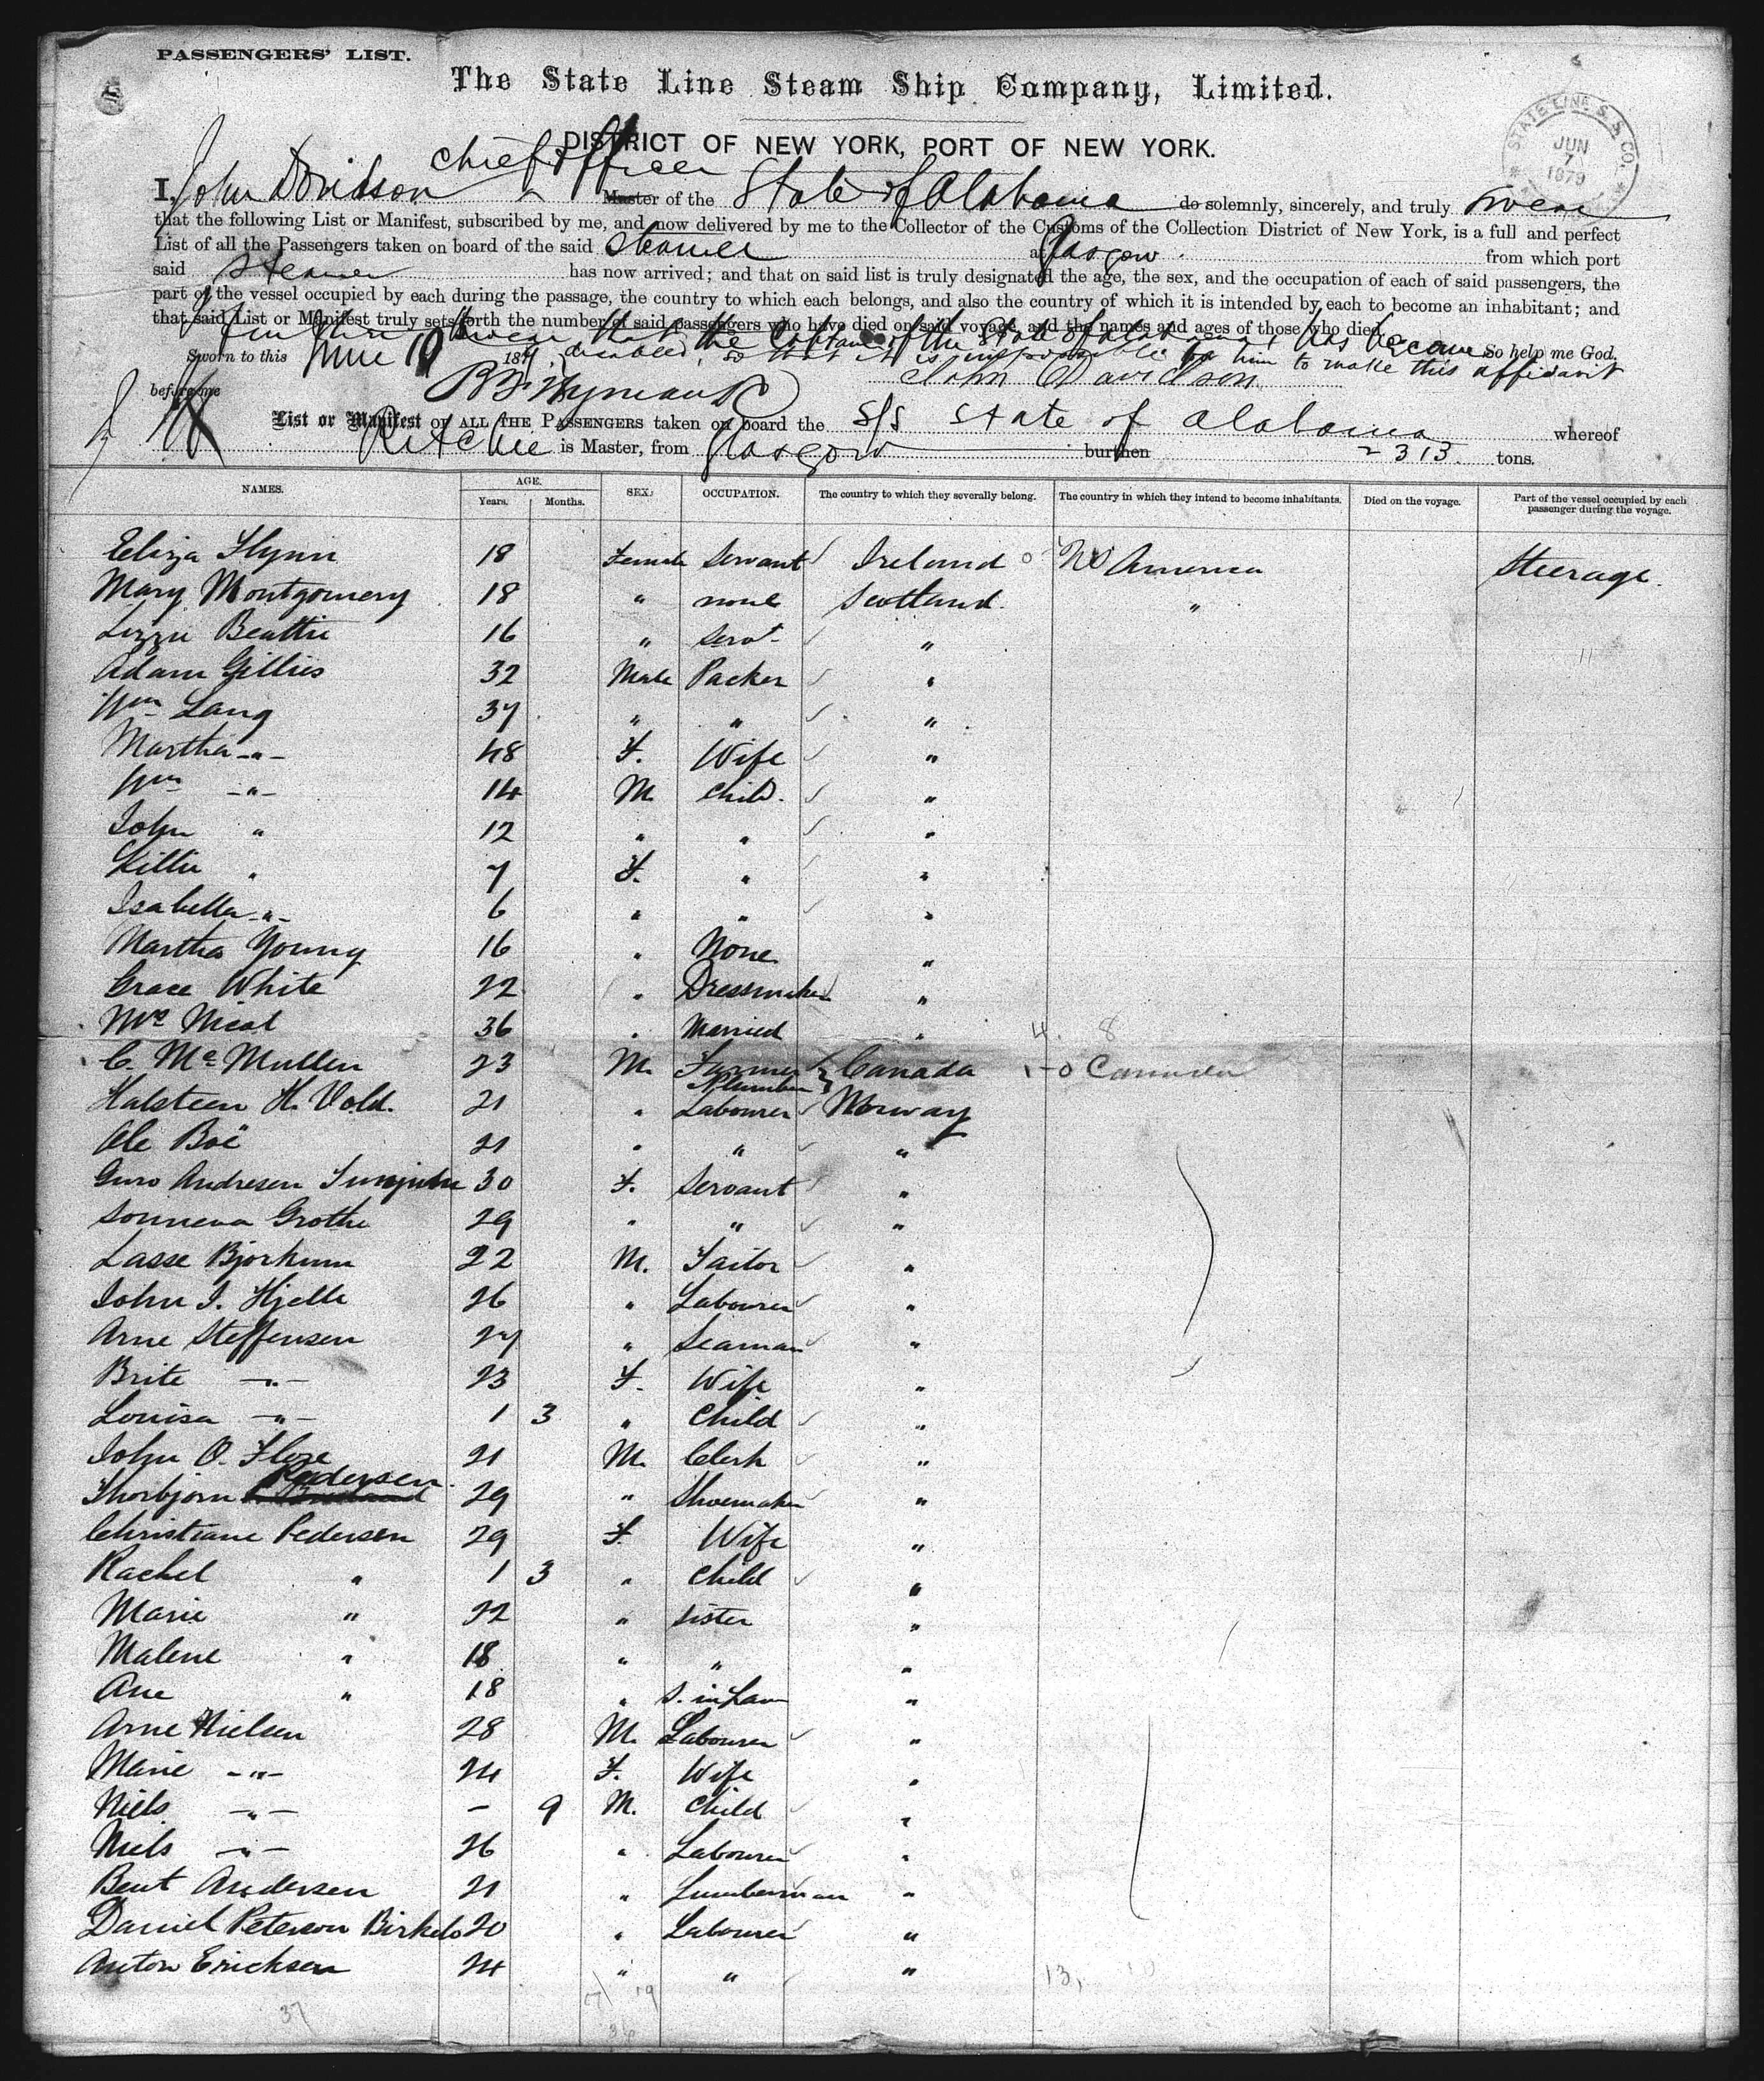 PASSENGERS' LIST.
The State Line Steam Ship Company, Limited.
DISTRICT OF NEW YORK, PORT OF NEW YORK.
STATE LINE S. S. CO.
JUN
7
1879
Chief Officer
I, John Davidson Master of the State of Alabama do solemnly, sincerely, and truly swear
that the following List or Manifest, subscribed by me, and now delivered by me to the Collector of the Customs of the Collection District of New York, is a full and perfect
List of all the Passengers taken on board of the said Steamer at Glasgow from which port
said Steamer has now arrived; and that on said list is truly designated the age, the sex, and the occupation of each of said passengers, the
part of the vessel occupied by each during the passage, the country to which each belongs, and also the country of which it is intended by each to become an inhabitant; and
that said List or Manifest truly sets forth the number of said passengers who have died on said voyage, and the names and ages of those who died.
swear that the Captain of the State of Alabama has become So help me God.
disabled, so that it is impossible for him to make this affidavit
Sworn to this June 10 187
before me John Davidson
List or Manifest OF ALL THE PASSENGERS taken on board the S/S State of Alabama whereof
Ritchie is Master, from Glasgow burthen 2313 tons.
NAMES. AGE. Years. Months. SEX. OCCUPATION. The country to which they severally belong. The country in which they intend to become inhabitants. Died on the voyage. Part of the vessel occupied by each passenger during the voyage.
Eliza Flynn 18 Female Servant Ireland America Steerage.
Mary Montgomery 18 " none Scotland. "
Lizzie Beattie 16 " Servt "
Adam Gillies 32 Male Packer "
Wm Lang 37 " " "
Martha -"- 48 F. Wife "
Wm -"- 14 M. Child. "
John " 12 " " "
Lillie " 7 F. " "
Isabella -"- 6 " " "
Martha Young 16 " None "
Grace White 22 " Dressmaker "
Mrs Nicol 36 " Married " 4. 8
C. McMullen 23 M. Farmer Canada Canada
Plumber
Halsteen H. Vold. 21 " Labourer Norway
Ole Boë 21 " " "
Guro Andresen 30 F. Servant "
Sonneva Grothe 29 " " "
Lasse Bjorkum 22 M. Tailor "
John I. Hjelle 26 " Labourer "
Arne Steffensen 27 " Seaman "
Brite -"- 23 F. Wife "
Louisa -"- 1 3 " Child "
John O. Floze 21 M. Clerk "
Thorbjorn Pedersen 29 " Shoemaker "
Christiane Pedersen 29 F. Wife "
Rachel " 1 3 " Child "
Marie " 22 " Sister "
Malene " 18 " " "
Ane " 18 " S. in Law "
Arne Nielsen 28 M. Labourer "
Marie -"- 24 F. Wife "
Niels -"- - 9 M. Child "
Niels -"- 26 " Labourer "
Bent Andersen 21 " Lumberman "
Daniel Peterson Birkelo 20 " Labourer "
Anton Ericksen 24 " " " 13,
37